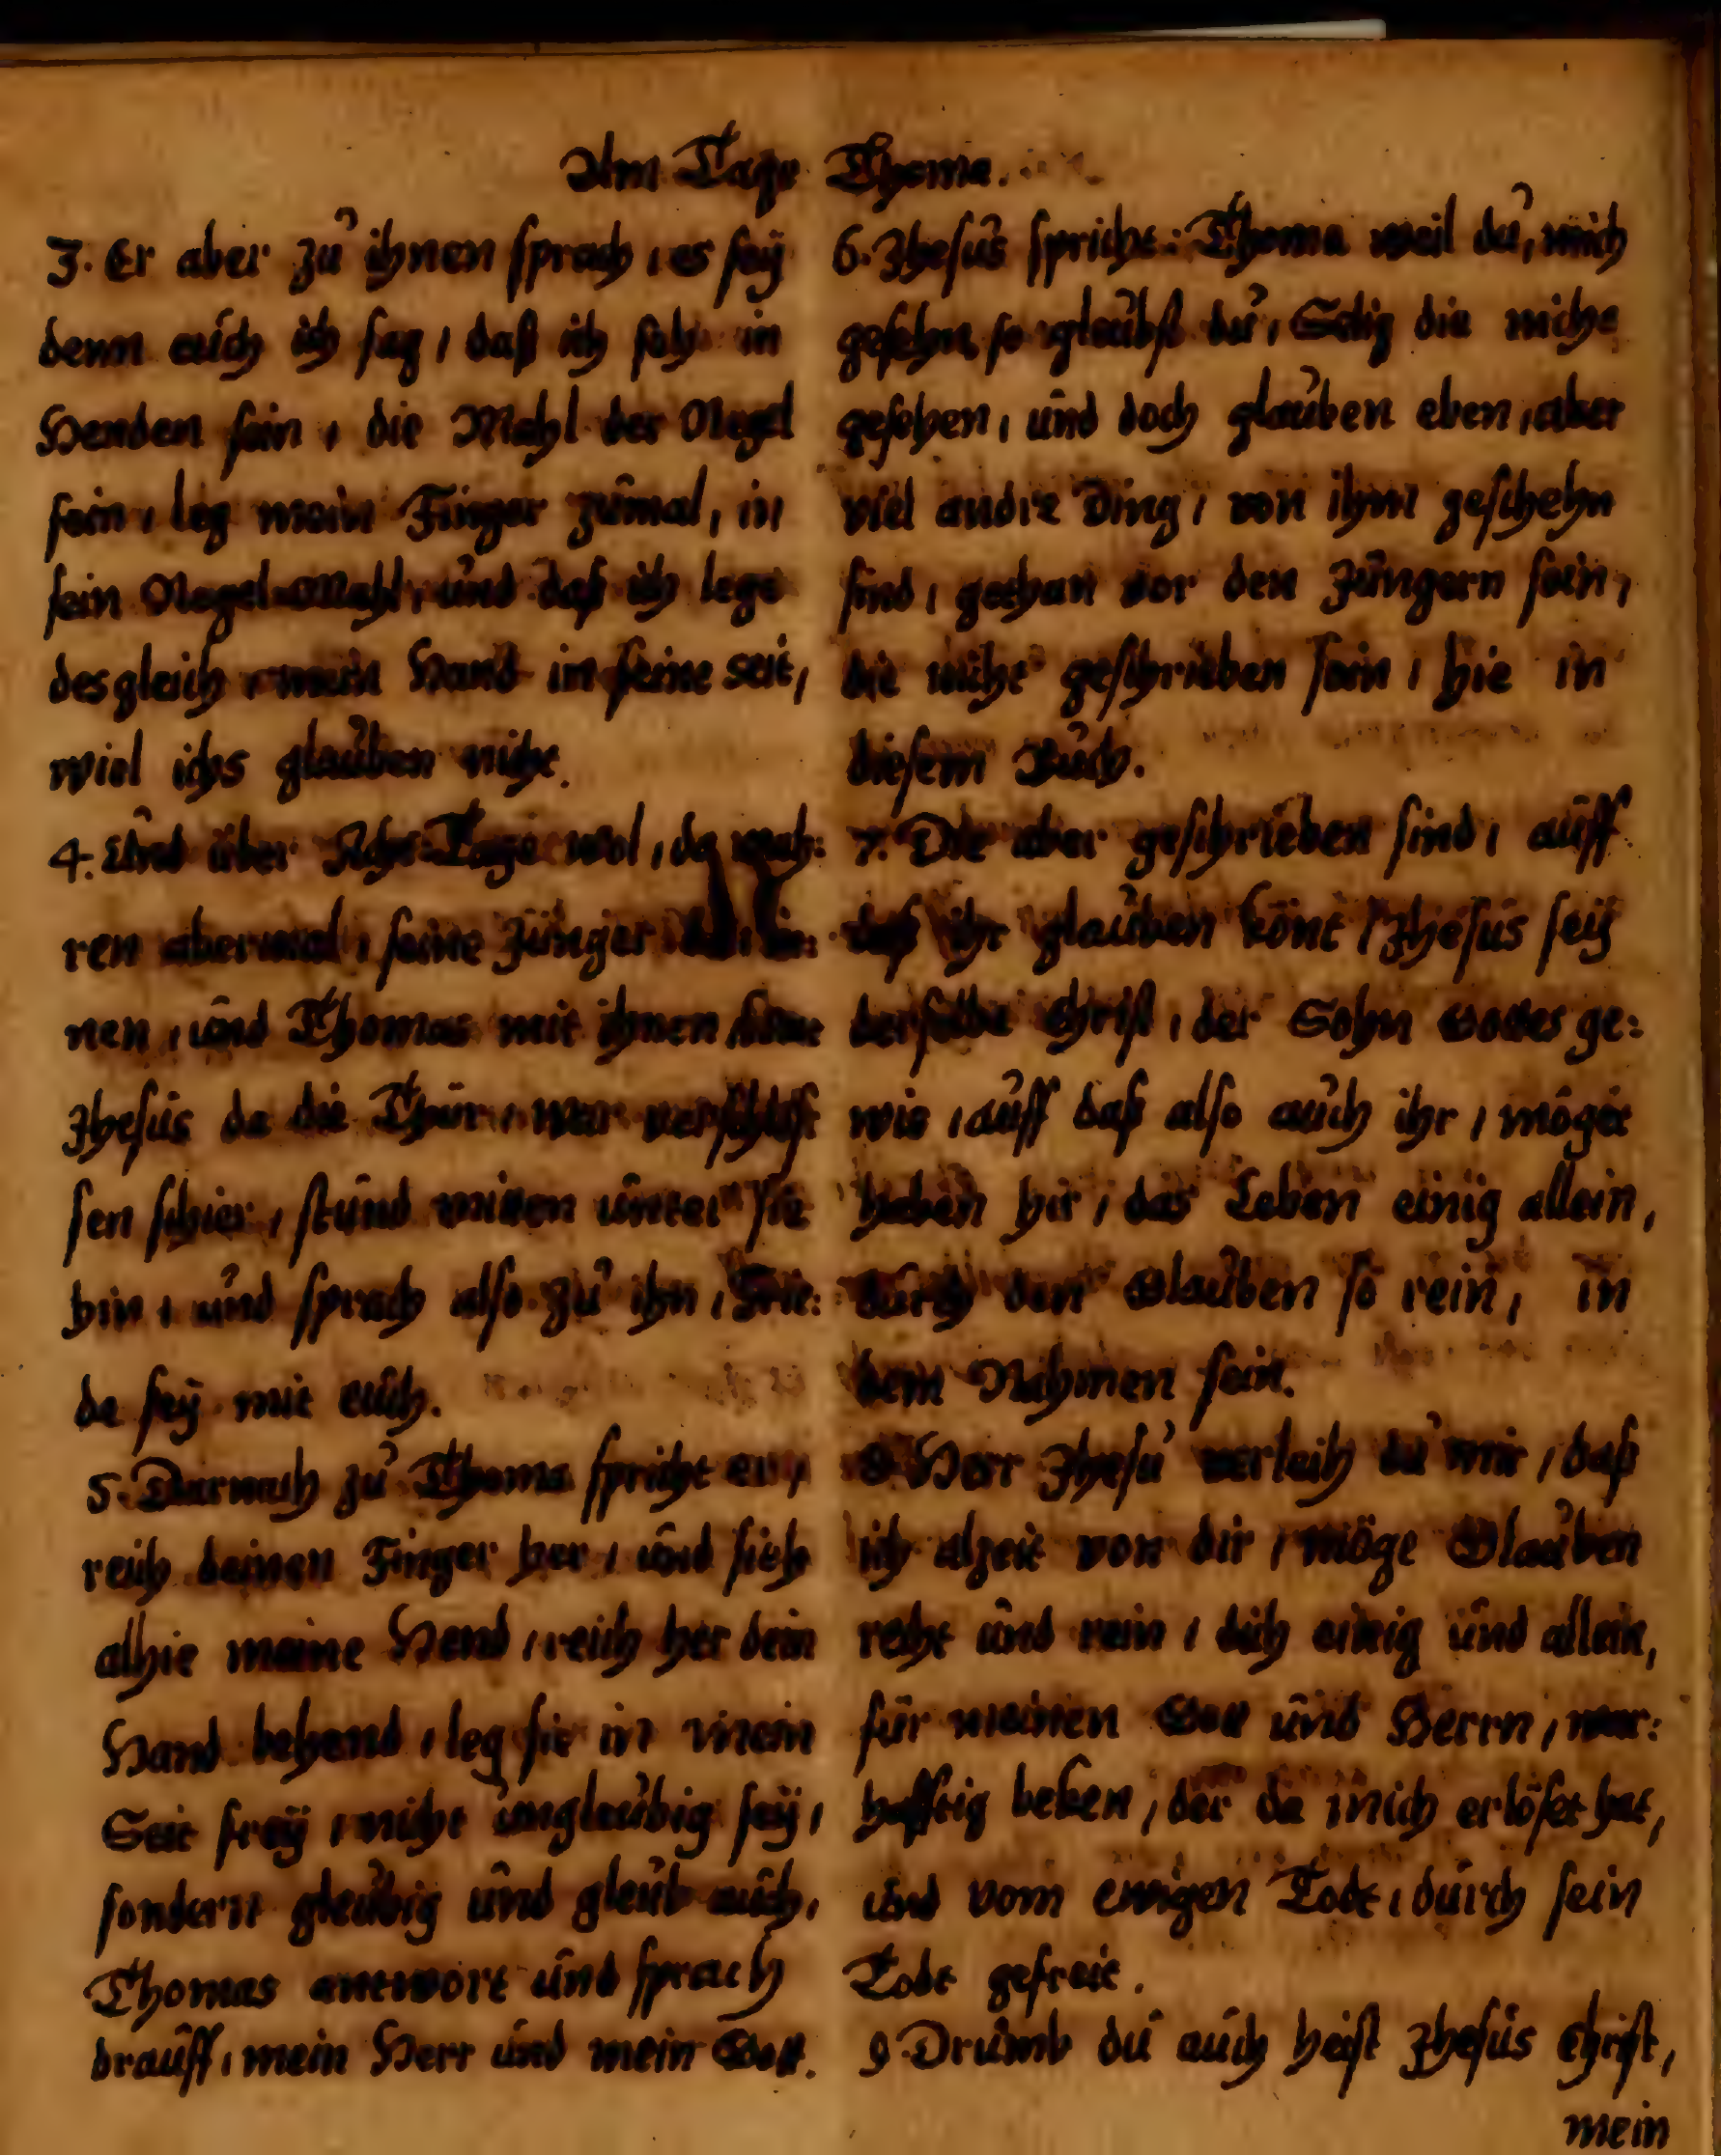 Am Tage Thomæ.
3. Er aber zu ihnen sprach, es seÿ
denn auch ich sag, daß ich seh in
Henden sein, die Mahl der Negel
sein, leg mein Finger zumal, in
sein Negel-Mahl, und daß ich lege
desgleich, mein Hand in seine seit,
wiel ichs glauben nicht.
4. Und über Acht-Tage wol, da wah:
ren abermal, seine Jünger
nen, und Thomas mit ihnen
Jhesus da die Thür, war verschloß
sen schier, stund mitten unter sie
hin, und sprach also zu ihn, Frie:
de seÿ mit euch.
5. Darnach zu Thoma spricht er,
reich deinen Finger her, und sieh
alhie meine Hend, reich her dein
Hand behend, leg sie in mein
Seit freÿ, nicht ungleubig seÿ,
sondern gleubig und gleub auch,
Thomas antwort und sprach
drauff, mein Herr und mein Gott.
6. Jhesus spricht: Thoma weil du, mich
gesehn, so glaubst du, Selig die nicht
gesehen, und doch glauben eben, aber
viel andre Ding, von ihm geschehn
sind, gethan vor den Jüngern sein,
die nicht geschrieben sein, hie in
diesem Buch.
7. Die aber geschrieben sind, auff
daß ihr glauben könt, Jhesus seÿ
derselbe Christ, der Sohn Gottes ge:
wis, auff daß also auch ihr, möget
haben hir, das Leben einig allein,
durch den Glauben so rein, in
dem Nahmen sein.
8. Herr Jhesu verleih du mir, daß
ich alzeit von dir, möge Glauben
recht und rein, dich einig und allein,
für meinen Gott und Herrn, war:
hafftig beken, der da mich erlöset hat,
und vom ewigen Tode, durch sein
Tode gefreit.
9. Drumb du auch heist Jhesus Christ,
mein